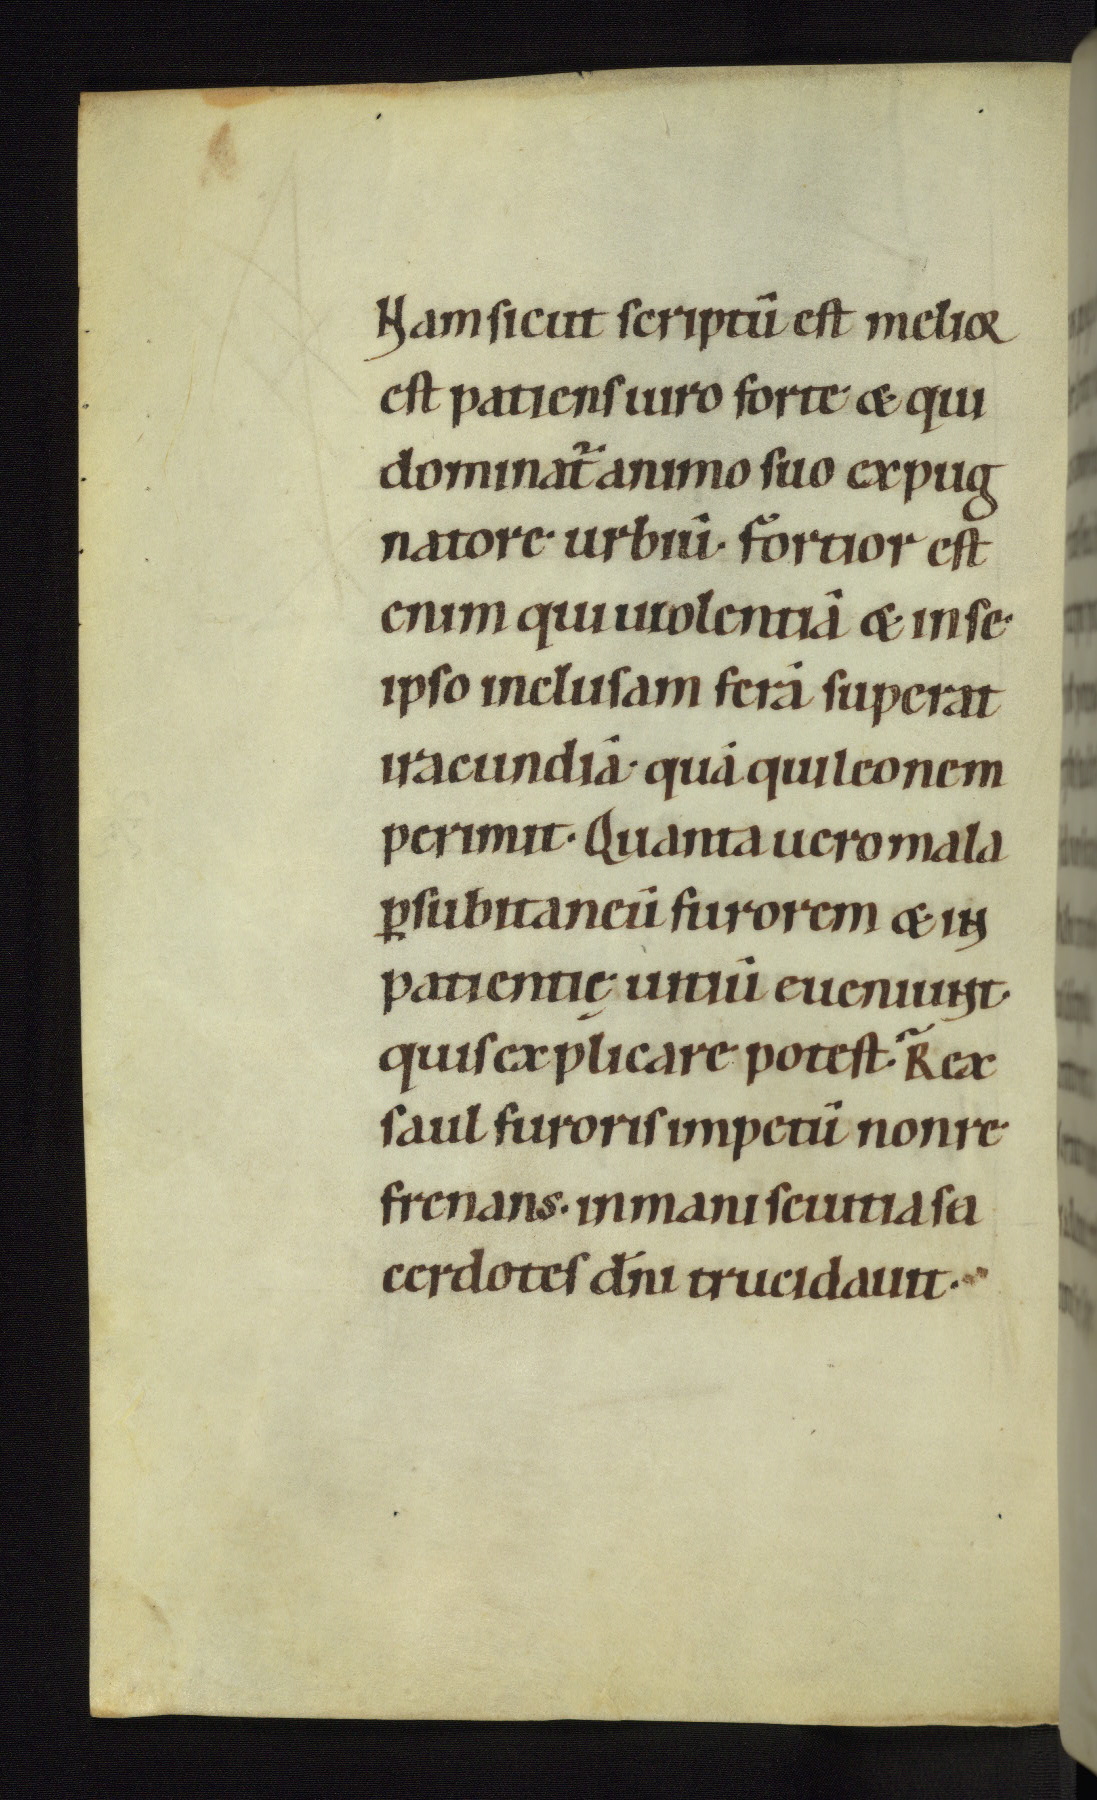 Nam sicut scriptū est melior
est patiens uiro forte & qui
dominat̄ animo suo expug
natore urbiū· fortior est
enim qui uiolentiā & in se
ipso inclusam ferā superat
iracundiā· quā qui leonem
perimit· Quanta uero mala
ꝑ subitaneū furorem & in
patientię uitiū eueniunt·
quis explicare potest· Rex
saul furoris impetū non re
frenans· inmani seuitia sa
cerdotes dn̄i trucidauit·